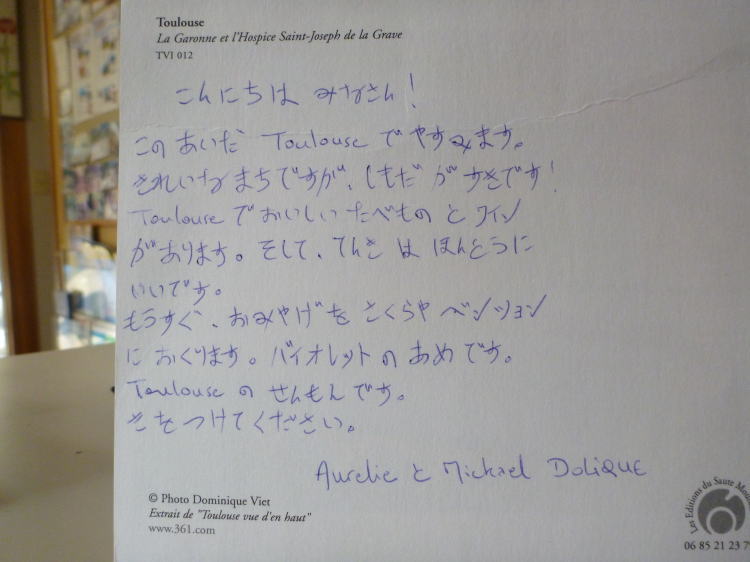 Toulouse
La Garonne et l'Hospice Saint-Joseph de la Grave
TVI 012
こんにちは みなさん!
このあいだ Toulouse で やすみます。
きれいな まちですが、しもだ が すきです!
Toulouse で おいしい たべもの と ワイン
が あります。そして、てんき は ほんとうに
いいです。
もうすぐ、おみやげ を さくらや ペンション
に おくります。バイオレット の あめ です。
Toulouse の せんもん です。
きをつけてください。
Aurelie と Mickael DOLIQUE
© Photo Dominique Viet
Extrait de "Toulouse vue d'en haut"
www.361.com
Les Editions du Saute
06 85 21 23 7